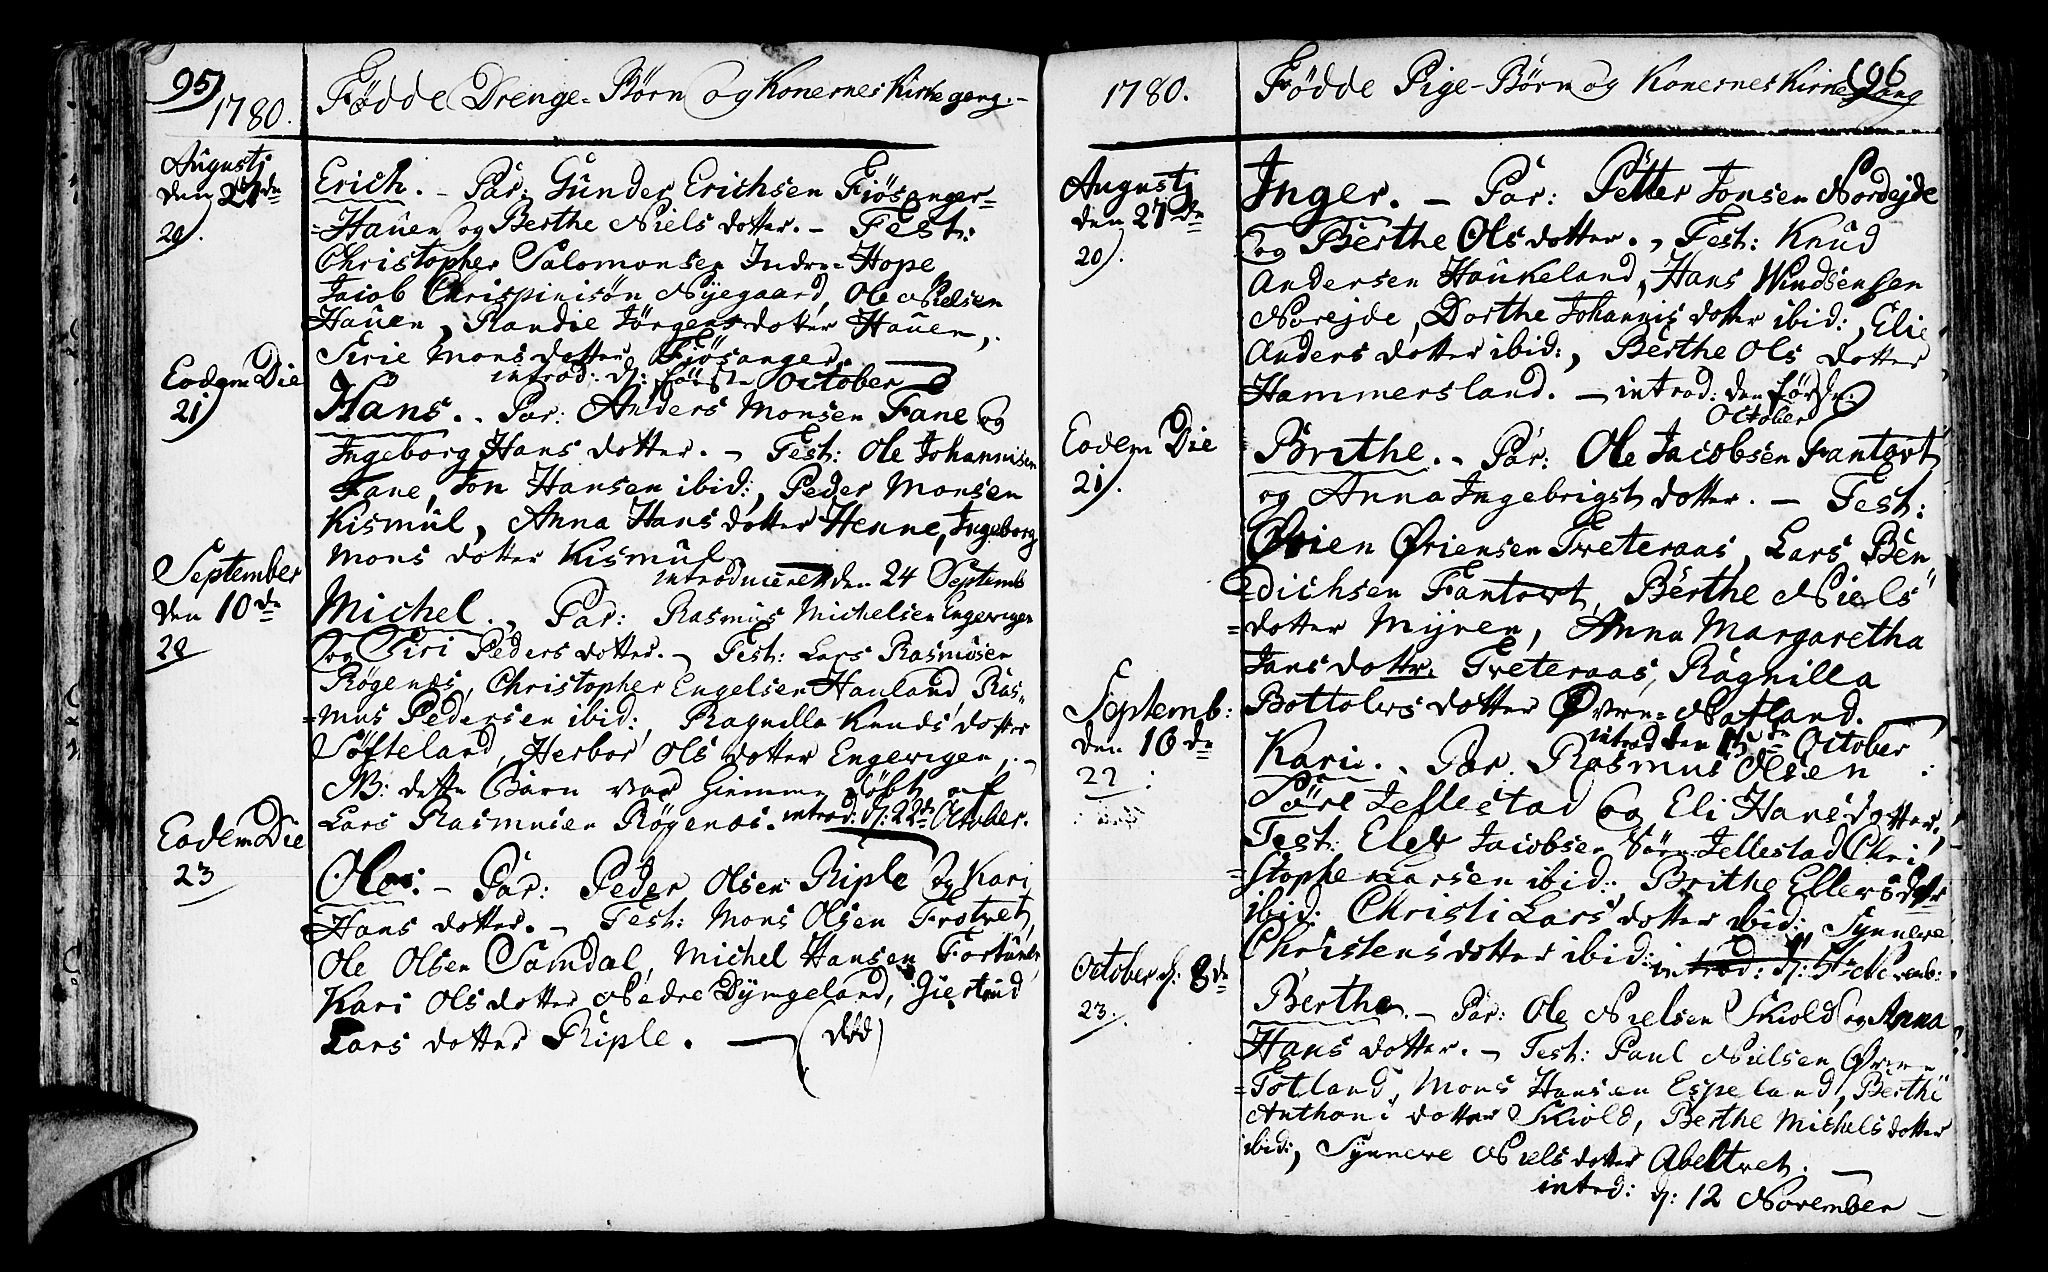 95)
1780.
Fødde Drenge-Børn og Konernes Kirkegang.-
Augustj
den 27de
20).
Erich. - Par: Gunder Erichsen Fiösanger-
-Hauen og Berthe Niels dotter. - Test:
Christopher Salomonsen Indre-Hope
Jacob Chrispinisøn Nyegaard, Ole Nielsen
Hauen, Randie Jörgens dotter Hauen,
Sirie Mons dotter Fiösanger
introd: d: første October
Eodem Die
21)
Hans. - Par: Anders Monsen Fane og
Ingeborg Hans dotter. - Test: Ole Johannisen
Fane, Jon Hansen ibid:, Peder Monsen
Kismul, Anna Hans dotter Henne, Ingeborg
Mons dotter Kismul
introduceret den 24 Septemb
September
den 10de
Michel. - Par: Rasmus Michelsen Engevigen
og Siri Peders dotter. - Test: Lars Rasmusen
Rögenæs, Christopher Engelsen Hauland, Ras-
-mus Pedersen ibid:, Ragnilla Knuds dotter
Söfteland, Herbor Ols dotter Engevigen.-
NB: dette Barn var hiemme döbt af
Lars Rasmusen Rögenæs. introd: d: 22de October.
Eodem Die
23
Ole. - Par: Peder Olsen Riple og Kari
Hans dotter. - Test: Mons Olsen Frotvet,
Ole Olsen Samdal, Michel Hansen Fortun,
Kari Ols dotter Nedre Dyngeland, Giertrud
Lars dotter Riple. - (död)
1780.
Fødde Pige-Børn og Konernes Kirkegang
96
Augustj
den 27de
20).
Inger. - Par: Petter Jonsen Nordejde
og Berthe Ols dotter. - Test: Knud
Andersen Haukeland, Hans
Norejde, Dorthe Johannis dotter ibid:, Elie
Anders dotter ibid:, Berthe Ols dotter
Hammersland. - introd: den første
October
Eodem Die
21).
Brithe. - Par: Ole Jacobsen Fantovt
og Anna Ingebrigst dotter. - Test:
Ørien Øriensen Tveteraas, Lars Ben
-dichsen Fantovt, Berthe Niels
-dotter Myren, Anna Margaretha
Jans dottr. Tveteraas, Ragnilla
Bottolvs dotter Øvre-Natland.
introd den October
Septemb:
den 10de
22
Kari. - Par: Rasmus Olsen
Söre Jellestad og Eli Hans dotter.
Test: Elev Jacobsen Sörn-Jellestad Chri
-stophe Larsen ibid:, Brithe Ellevs dotr
ibid: Christi Lars dotter ibid:, Synneve
Christens dotter ibid:
introd: d: 5te Novemb:
October d: 8de
23.
Berthe. - Par: Ole Nielsen Skiold og Anna
Hans dotter. - Test: Paul Nielsen Øvre
-Totland, Mons Hansen Espeland, Berthe
Anthoni dotter Skiold, Berthe Michels dotter
ibid:, Synneve Niels dotter Abeltvet. -
introd: d: 12 November